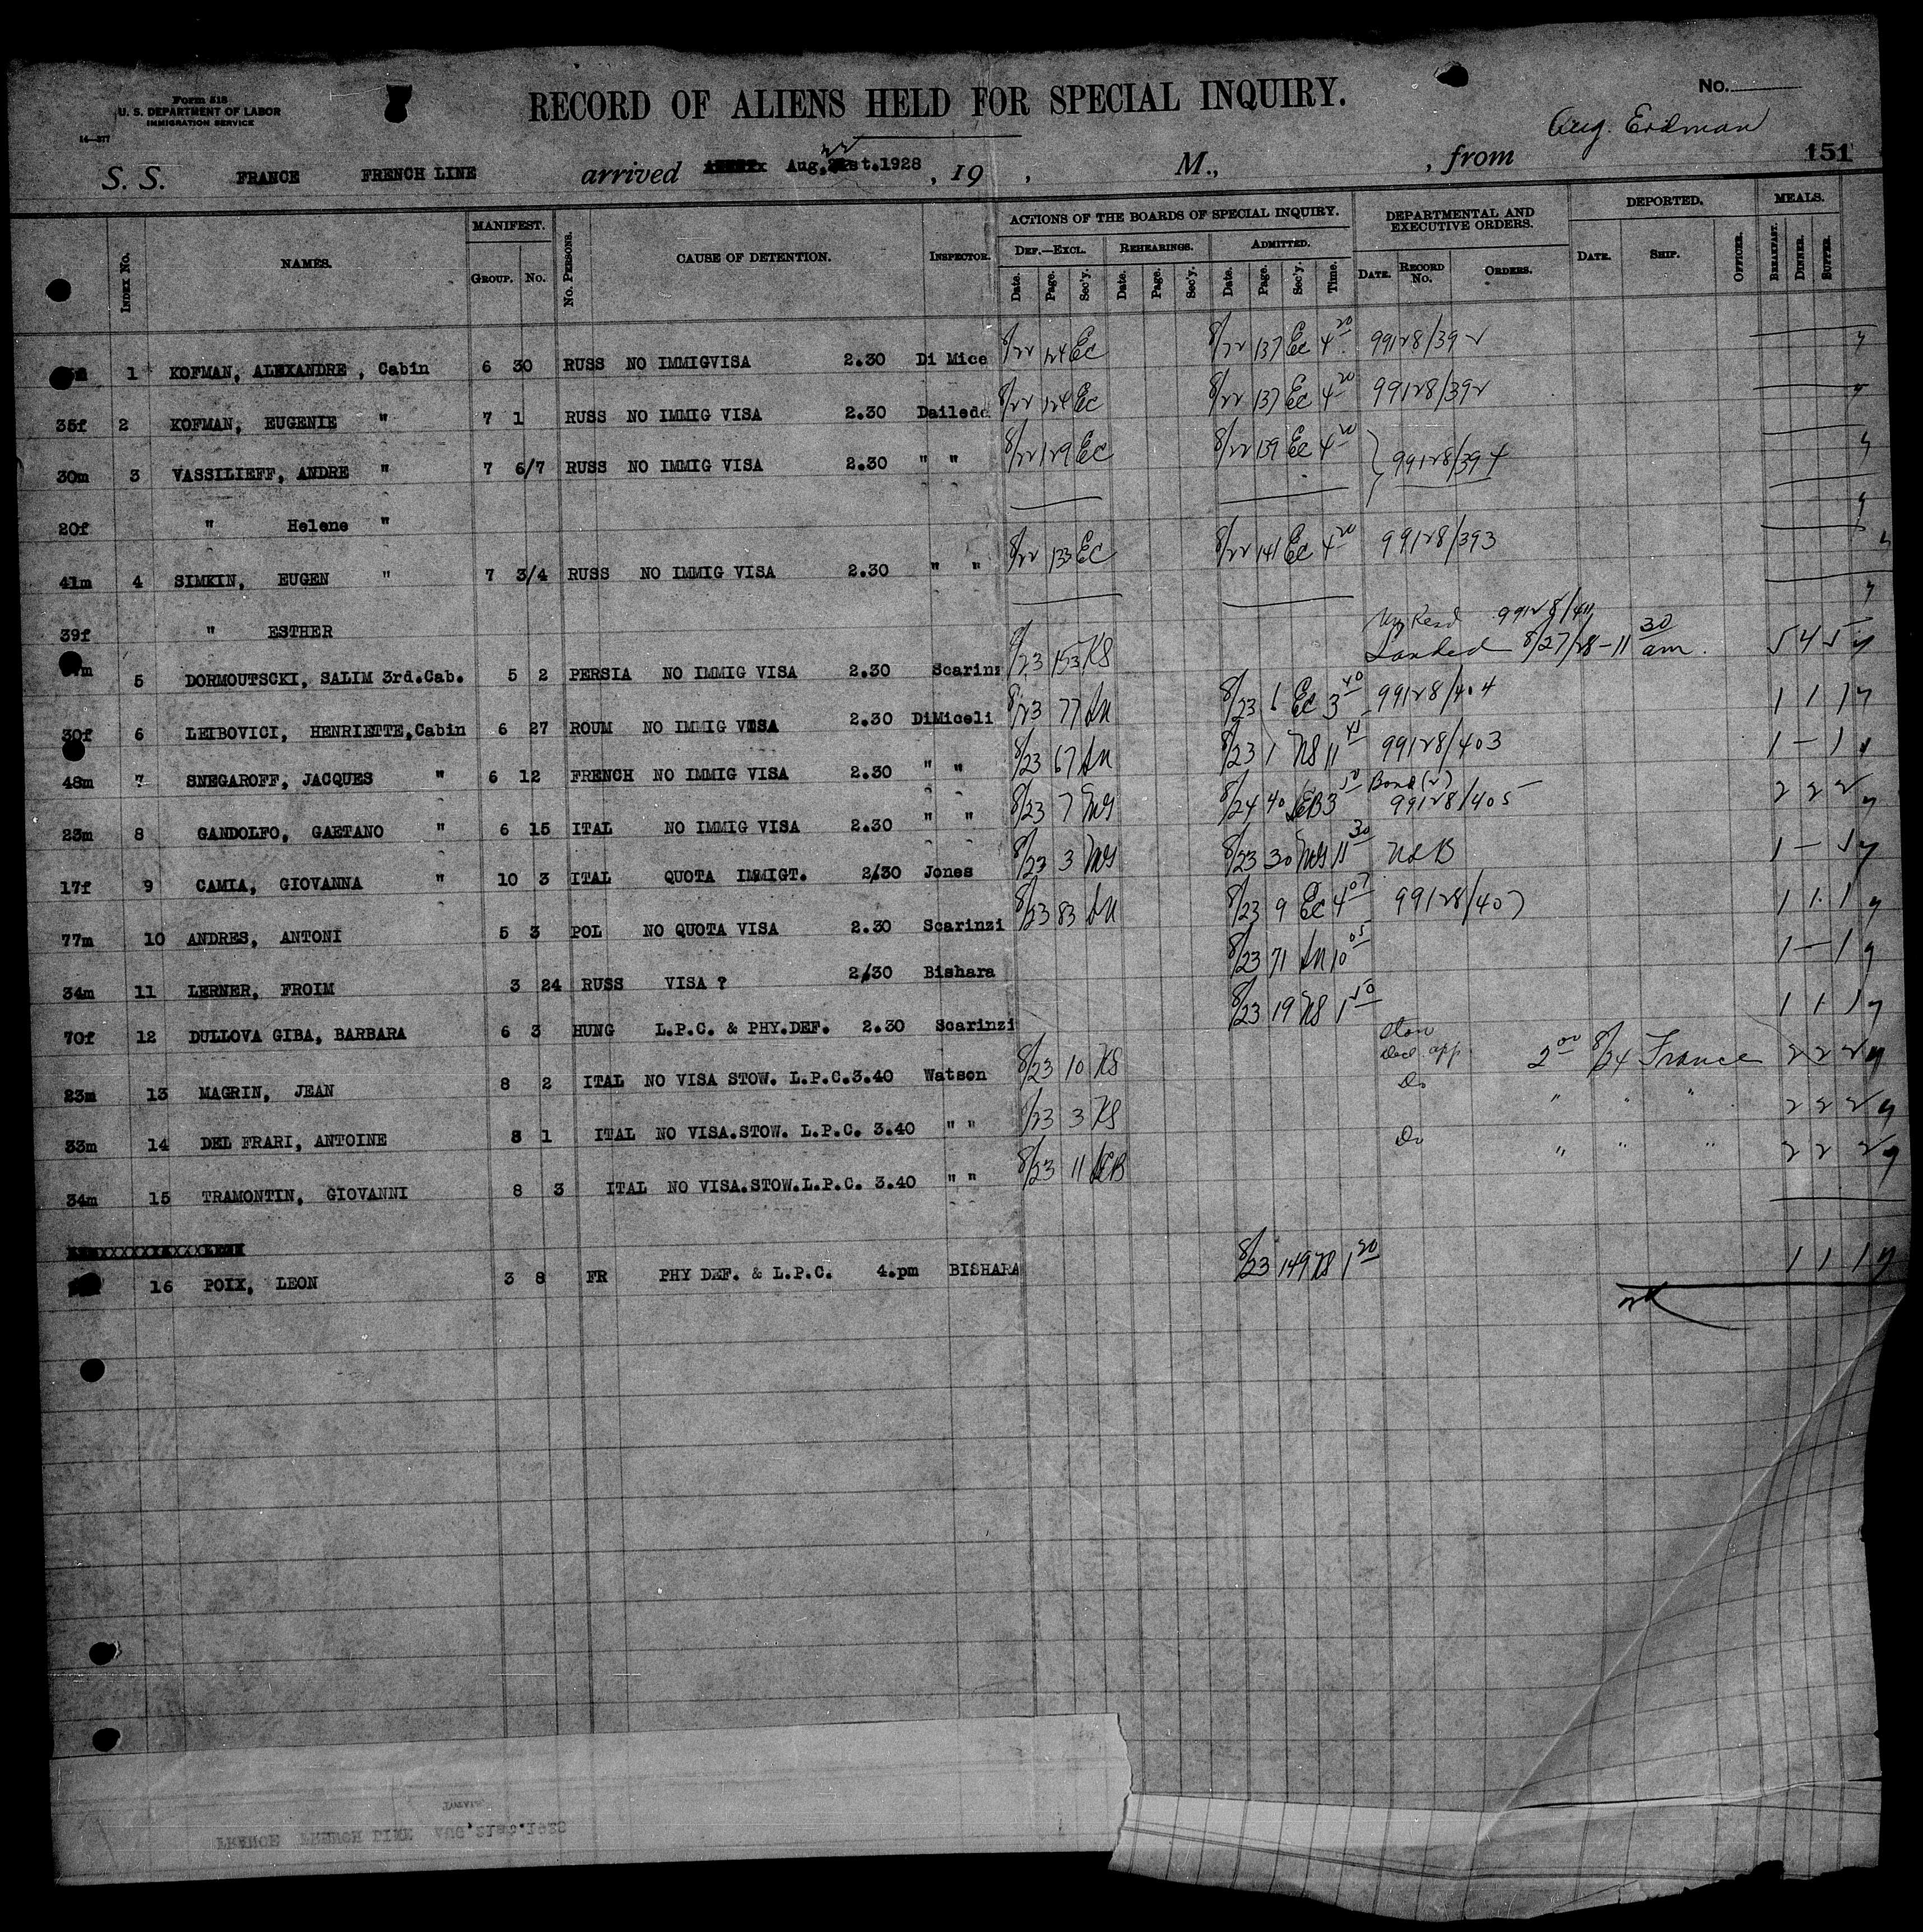 Form 518
U. S. DEPARTMENT OF LABOR
IMMIGRATION SERVICE
14—377
RECORD OF ALIENS HELD FOR SPECIAL INQUIRY.
No.
Aug. Erdman
151
S. S. FRANCE FRENCH LINE arrived Aug. 22 st.1928 , 19 , M., , from
INDEX NO. NAMES. MANIFEST. GROUP. NO. NO. PERSONS. CAUSE OF DETENTION. INSPECTOR. ACTIONS OF THE BOARDS OF SPECIAL INQUIRY. DEPARTMENTAL AND EXECUTIVE ORDERS. DEPORTED. MEALS.
DEF.—EXCL. REHEARINGS. ADMITTED.
Date. Page. Sec'y. Date. Page. Sec'y. Date. Page. Sec'y. Time. DATE. RECORD NO. ORDERS. DATE. SHIP. OFFICER. BREAKFAST. DINNER. SUPPER.
1 KOFMAN, ALEXANDRE , Cabin 6 30 RUSS NO IMMIGVISA 2.30 Di Mice 8/22 124 Ec 8/22 137 Ec 4 20 99128/392
35f 2 KOFMAN, EUGENIE " 7 1 RUSS NO IMMIG VISA 2.30 Dailedo 8/22 124 Ec 8/22 137 Ec 4 20 99128/392
30m 3 VASSILIEFF, ANDRE " 7 6/7 RUSS NO IMMIG VISA 2.30 " " 8/22 129 Ec 8/22 139 Ec 4 20 99128/394
20f " Helene "
41m 4 SIMKIN, EUGEN " 7 3/4 RUSS NO IMMIG VISA 2.30 " " 8/22 133 Ec 8/22 141 Ec 4 20 99128/393
39f " ESTHER
5 DORMOUTSCKI, SALIM 3rd.Cab. 5 2 PERSIA NO IMMIG VISA 2.30 Scarinz 8/23 153 KS 99128/411 Landed 8/27/28 – 11 30 am. 5 4 5
30f 6 LEIBOVICI, HENRIETTE,Cabin 6 27 ROUM NO IMMIG VISA 2.30 DiMiceli 8/23 77 8/23 6 Ec 3 40 99128/404 1 1 1
48m 7 SNEGAROFF, JACQUES " 6 12 FRENCH NO IMMIG VISA 2.30 " " 8/23 67 8/23 1 KS 11 99128/403 1 – 1
23m 8 GANDOLFO, GAETANO " 6 15 ITAL NO IMMIG VISA 2.30 " " 8/23 7 8/24 40 3 Bond 99128/405 2 2 2
17f 9 CAMIA, GIOVANNA " 10 3 ITAL QUOTA IMMIGT. 2/30 Jones 8/23 3 8/23 30 11 30 1 – 1
77m 10 ANDRES, ANTONI 5 3 POL NO QUOTA VISA 2.30 Scarinzi 8/23 83 8/23 9 Ec 4 07 99128/407 1 1 1
34m 11 LERNER, FROIM 3 24 RUSS VISA ? 2/30 Bishara 8/23 71 10 05 1 – 1
70f 12 DULLOVA GIBA, BARBARA 6 3 HUNG L.P.C. & PHY.DEF. 2.30 Scarinzi 8/23 19 KS 1 50 1 1 1
23m 13 MAGRIN, JEAN 8 2 ITAL NO VISA STOW. L.P.C.3.40 Watson 8/23 10 KS 2 00 8/24 France 2 2 2
33m 14 DEL FRARI, ANTOINE 8 1 ITAL NO VISA.STOW. L.P.C. 3.40 " " 8/23 3 KS Do " " " 2 2 2
34m 15 TRAMONTIN, GIOVANNI 8 3 ITAL NO VISA.STOW.L.P.C. 3.40 " " 8/23 11 Do " " " 2 2 2
16 POIX, LEON 3 8 FR PHY DEF. & L.P.C. 4.pm BISHARA 8/23 149 KS 1 20 1 1 1